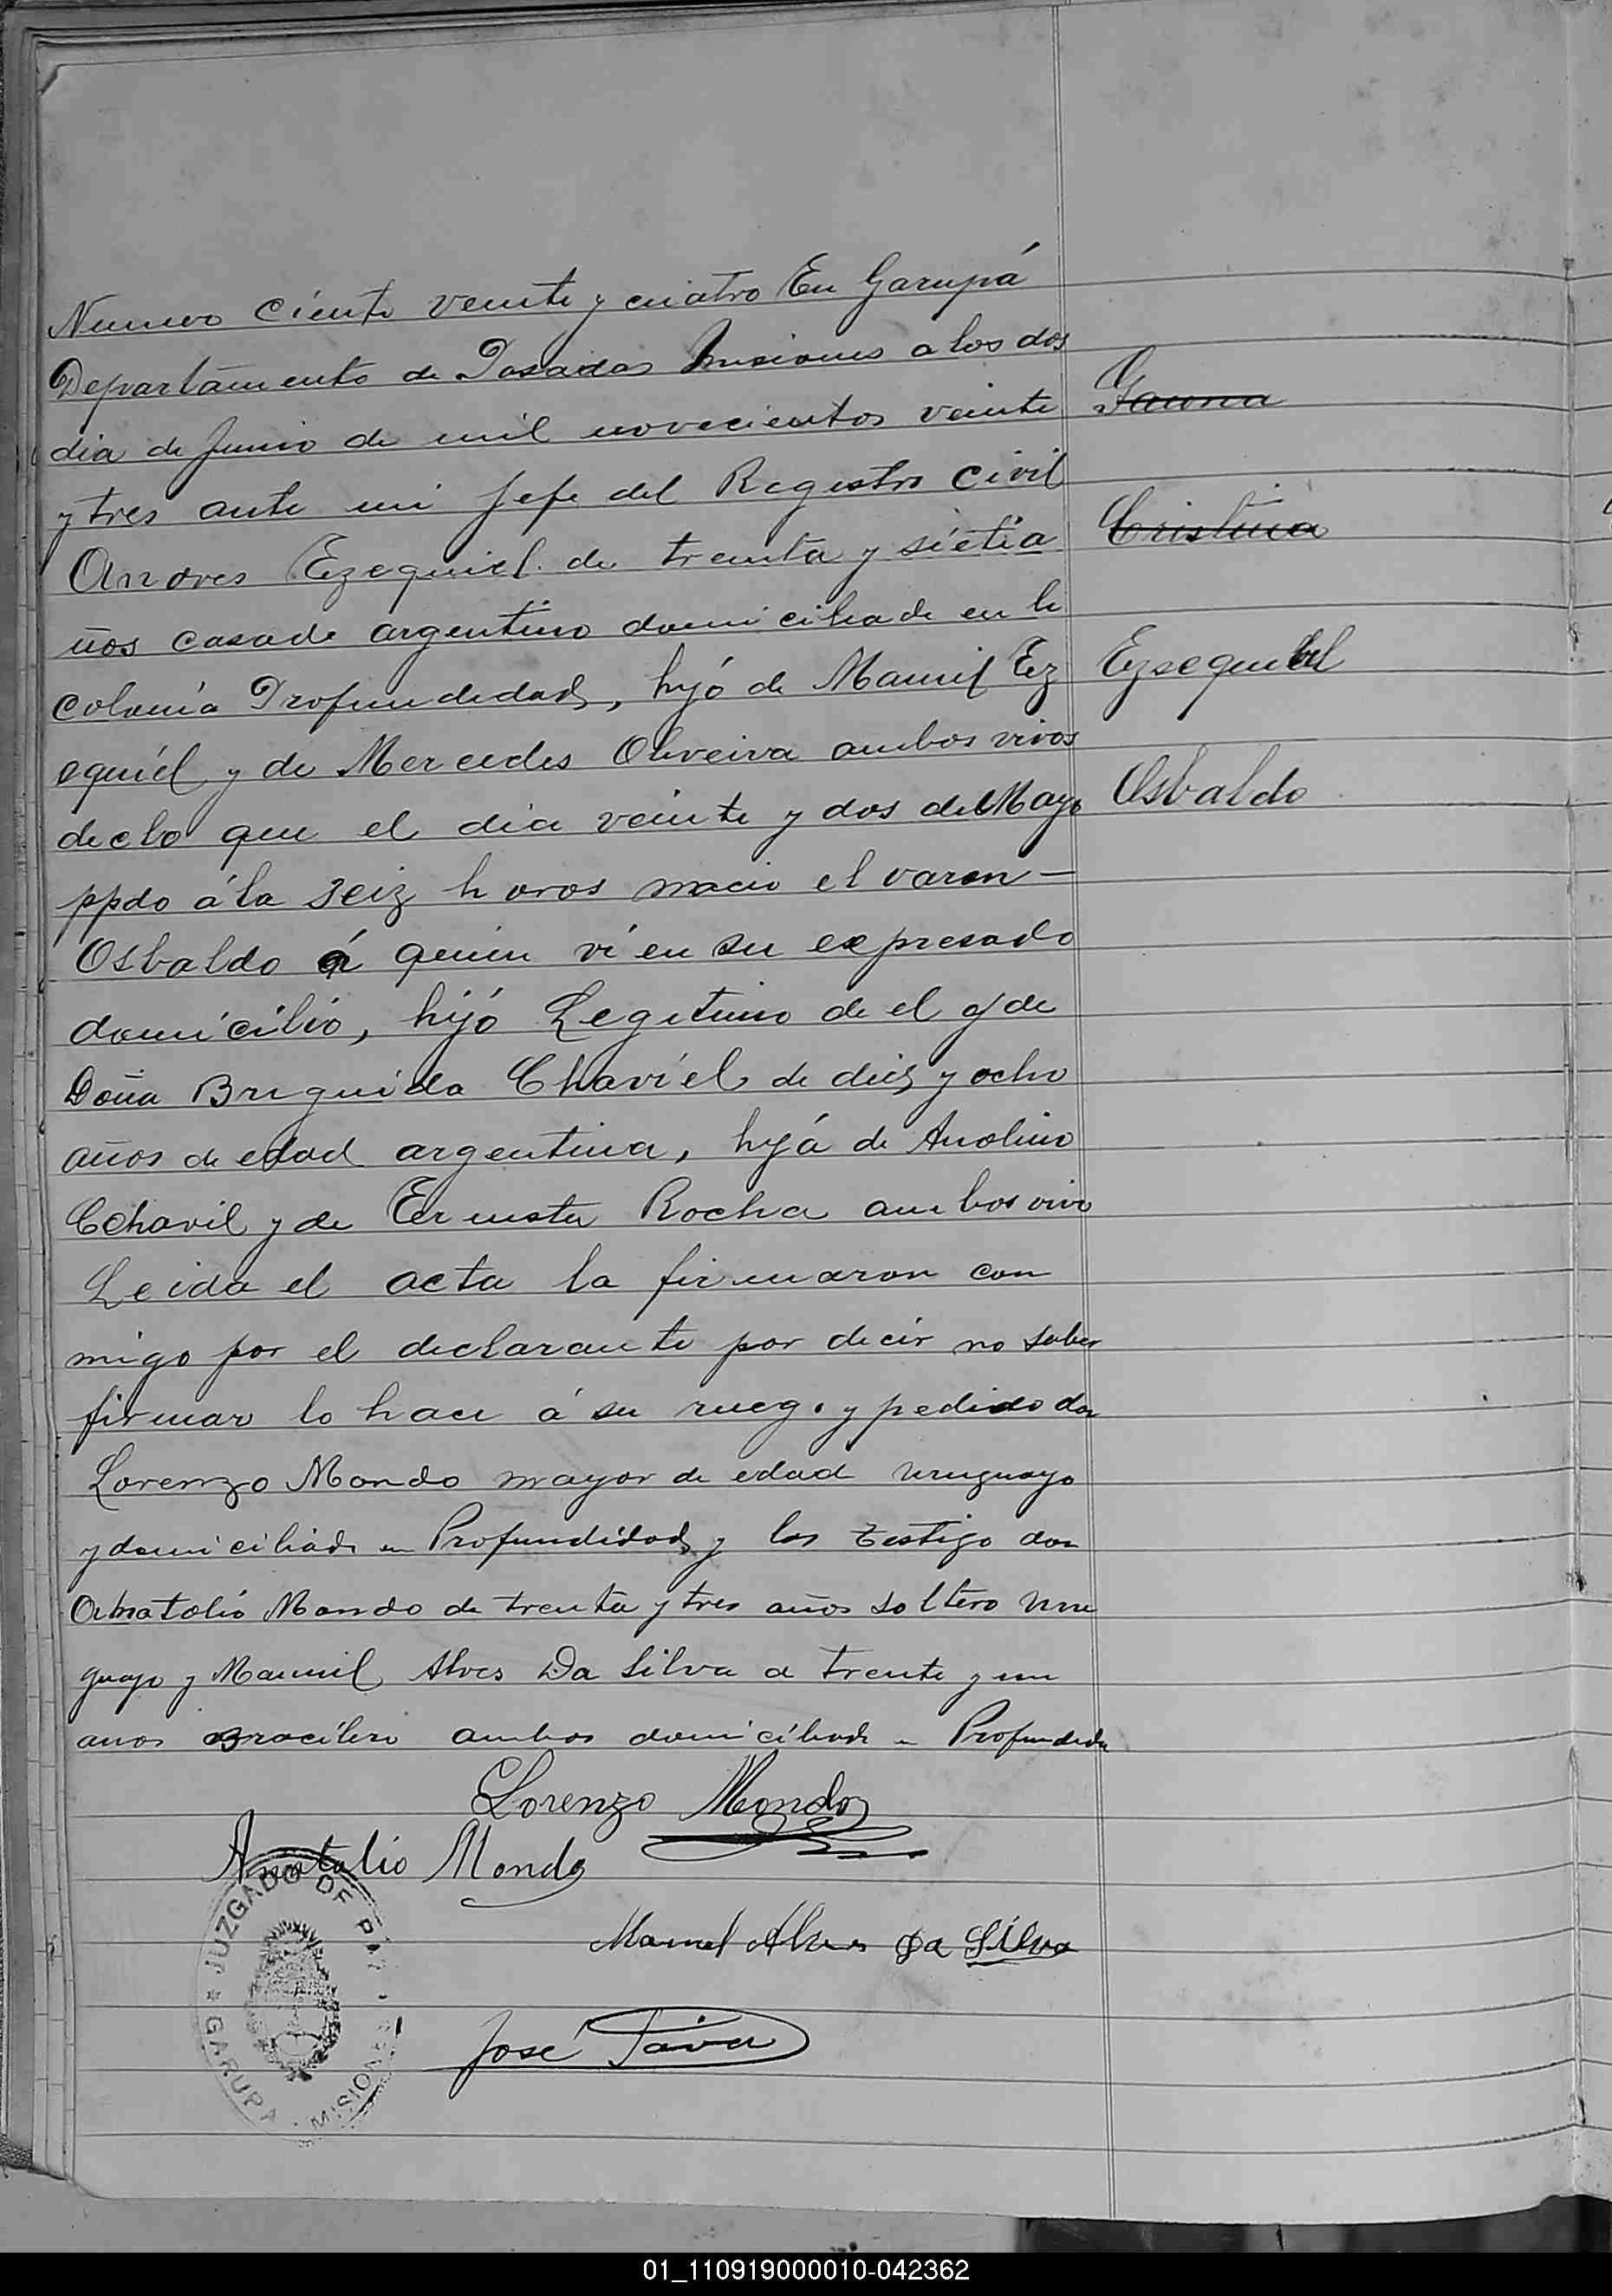 Numero Ciento veinte y cuatro En Garupá
Departamento de Posadas Misiones a los dos
dia de Junio de mil novecientos veinte
y tres ante mi Jefe del Registro Civil
Andres Ezequiel de treinta y siete a
ños casado argentino domiciliado en la
Colonia Profundidad, hijo de Manuel Ez
equiel y de Mercedes Oliveira ambos vivos
declo que el dia veinte y dos de Mayo
ppdo á la seiz horas nacio el varon -
Osbaldo á quien vi en su expresado
domicilio, hijó Legitimo de el y de
Doña Briguida Chaviel de diez y ocho
años de edad argentina, hijá de Anolino
Chavil y de Ernesta Rocha ambos vivo
Leida el acta la firmaron con
migo por el declarante por decir no saber
firmar lo hace á su ruego y pedido don
Lorenzo Mondo mayor de edad Uruguayo
y domiciliado en Profundidad y los testigo don
Anatolio Mondo de trenta y tres años soltero Uru
guayo y Manuel Alves Da Silva a trente y un
anos Bracilero ambos domiciliado en Profundida
Lorenzo Mondo
Anatalio Mondo
Manuel Alves Da Silva
José Páva
JUZGADO DE PAZ
GARUPA MISIONES
Gaona
Cristina
Ezsequiel
Osbaldo
01_110919000010-042362